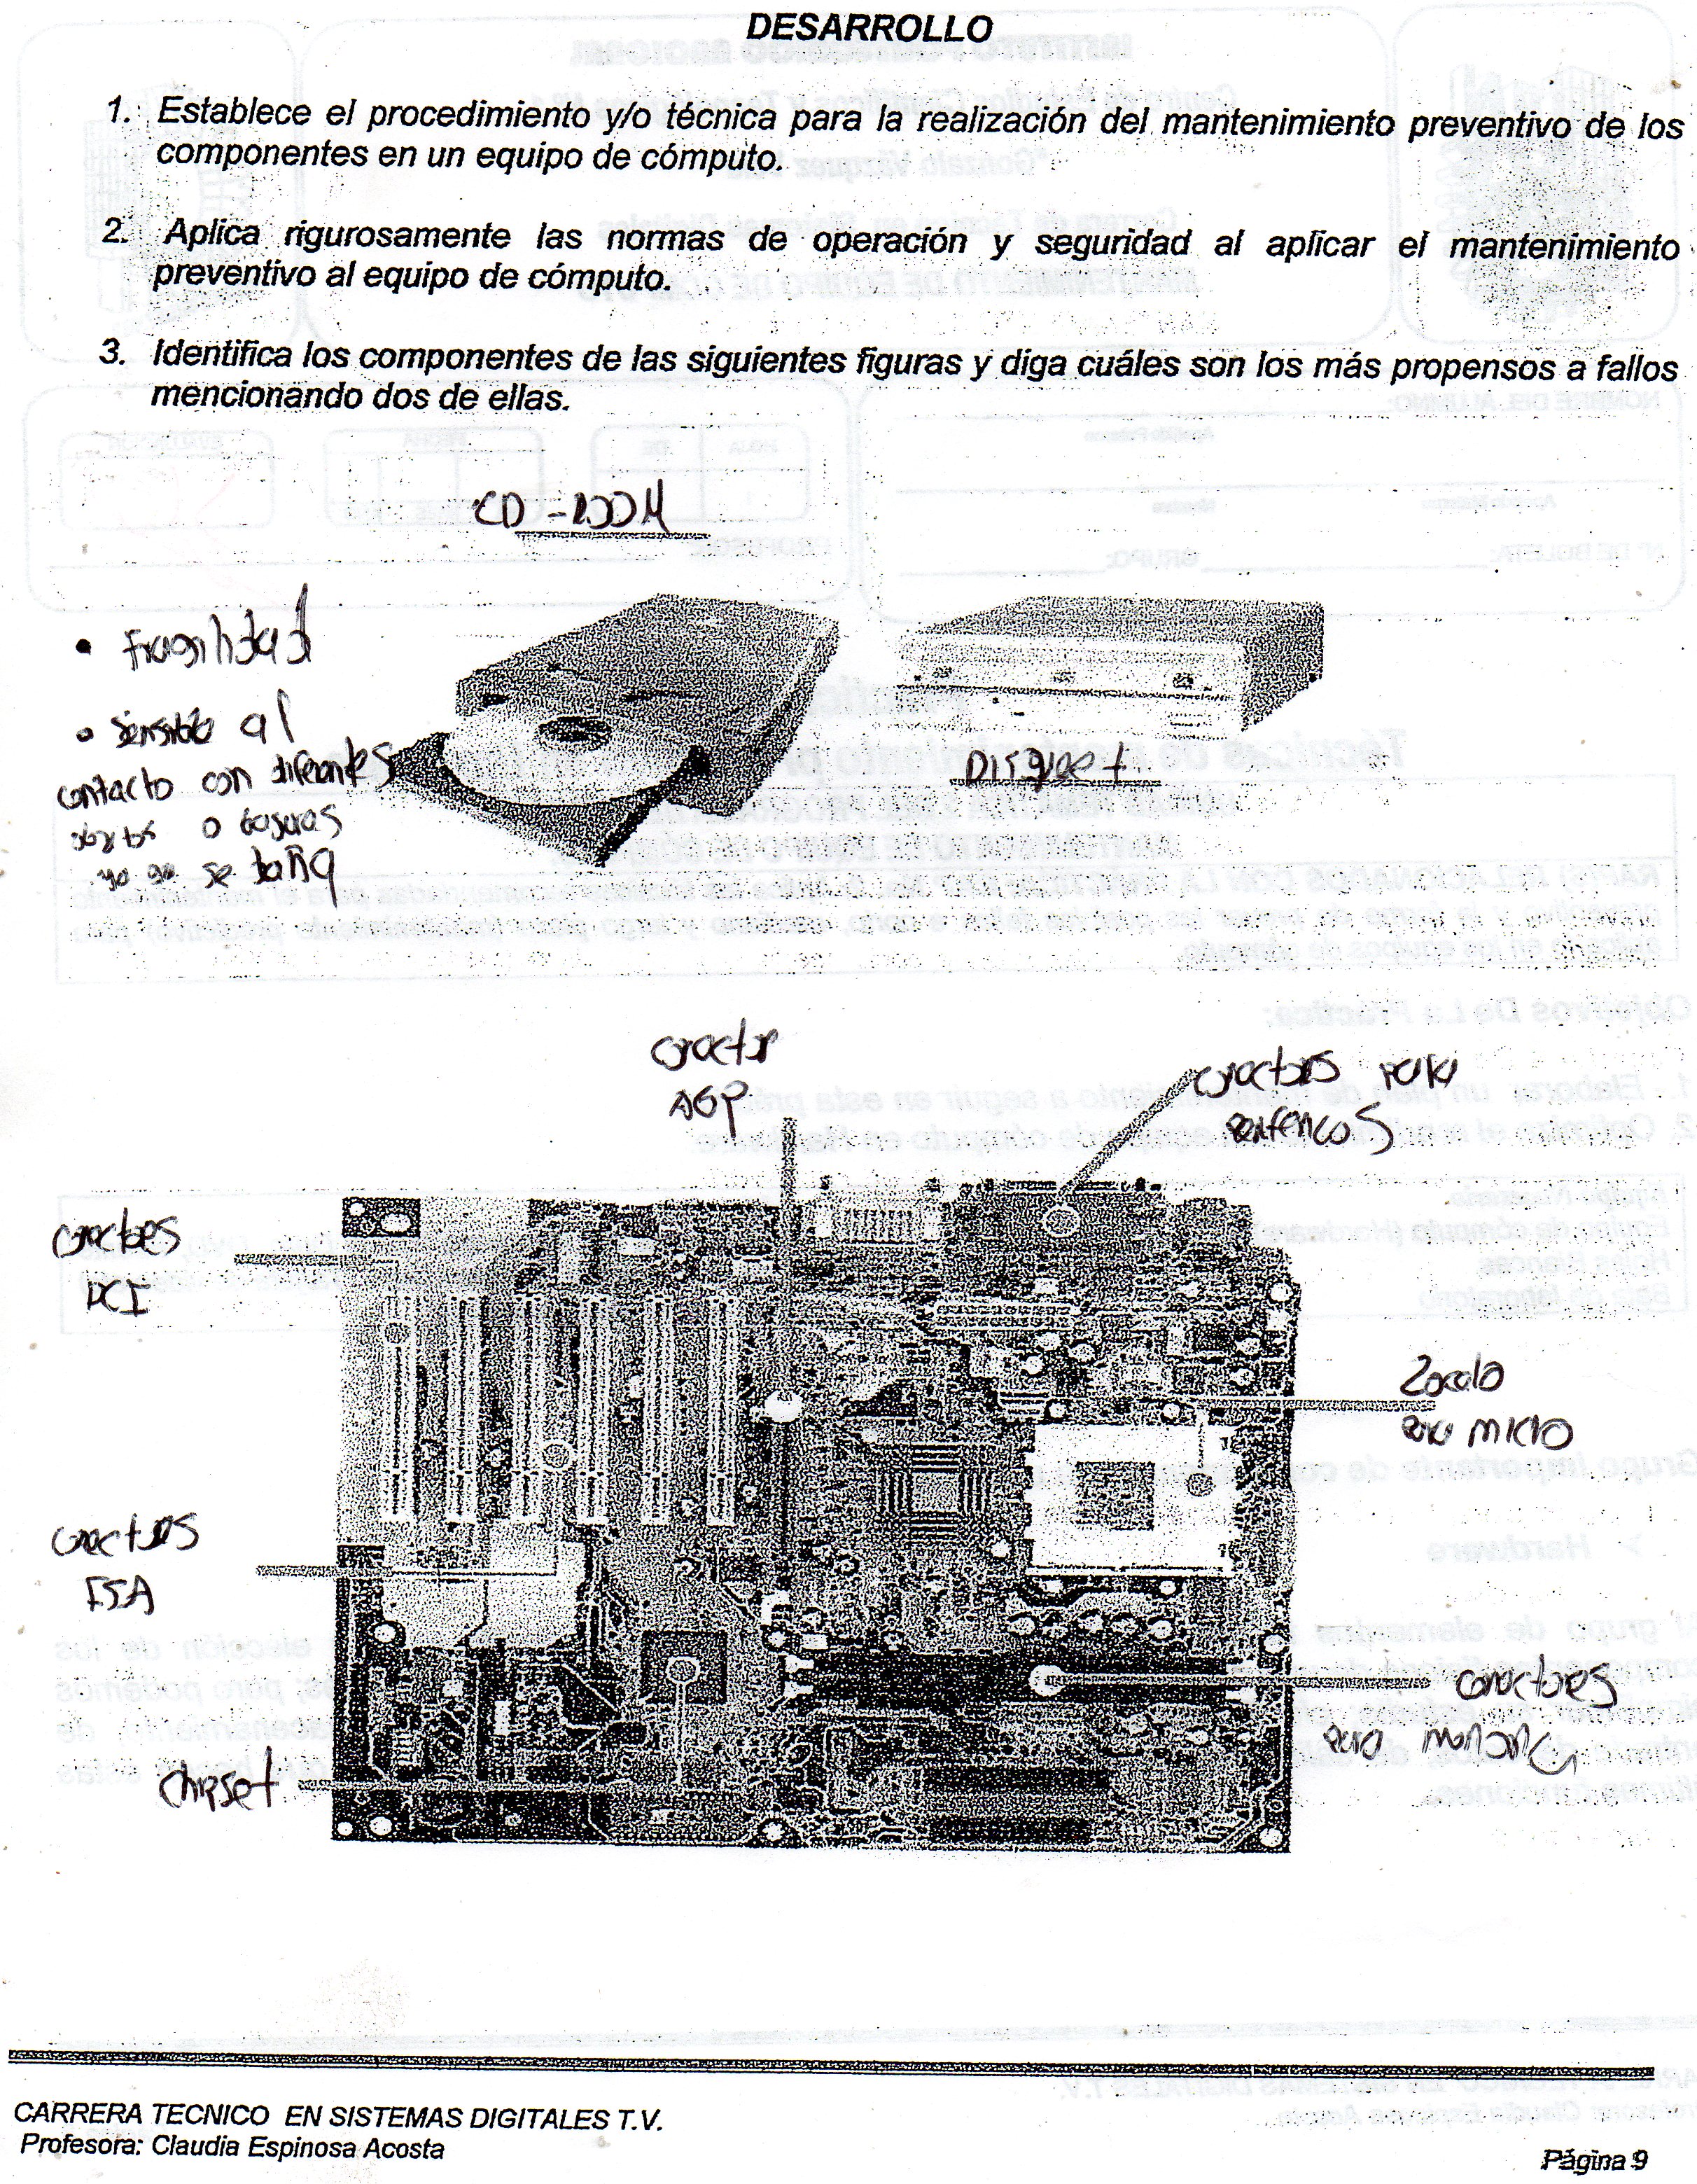 DESARROLLO
1. Establece el procedimiento y/o técnica para la realización del mantenimiento preventivo de los
componentes en un equipo de cómputo.
2. Aplica rigurosamente las normas de operación y seguridad al aplicar el mantenimiento
preventivo al equipo de cómputo.
3. Identifica los componentes de las siguientes figuras y diga cuáles son los más propensos a fallos
mencionando dos de ellas.
CD-ROOM
• fragilidad
• sensible al
contacto con diferentes
objetos o basuras
ya qe se daña
Disqueet
conector
AGP
conectores para
perifericos
conectores
PCI
Zocalo
para micro
conectores
ISA
conectores
para memoria
chipset
CARRERA TECNICO EN SISTEMAS DIGITALES T.V.
Profesora: Claudia Espinosa Acosta
Página 9